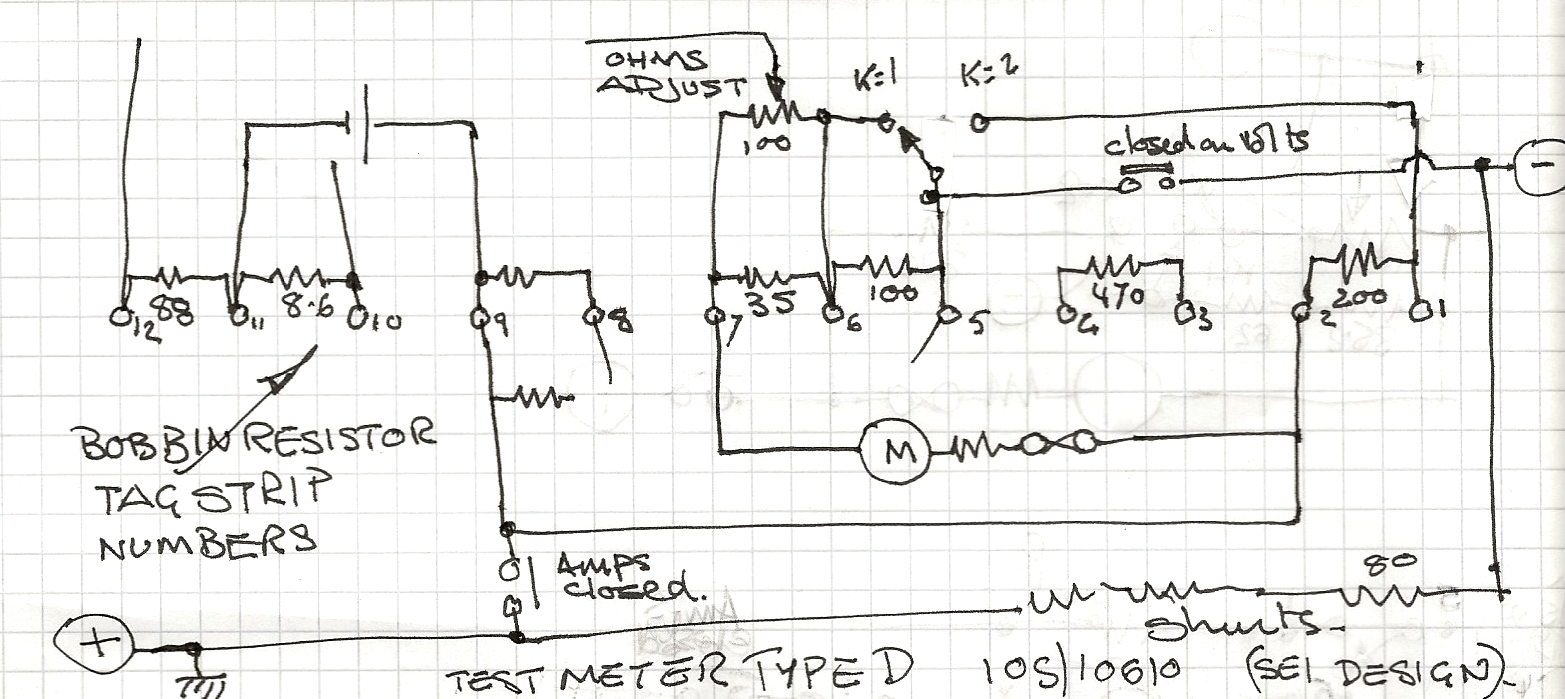 OHMS
ADJUST
K=1
K=2
100
closed on volts
-
88
8.6
35
100
470
200
12
11
10
9
8
7
6
5
4
3
2
1
BOBBIN RESISTOR
TAG STRIP
NUMBERS
M
AMPS
closed.
80
shunts-
+
TEST METER TYPE D 10S/10610 (SEI DESIGN)-